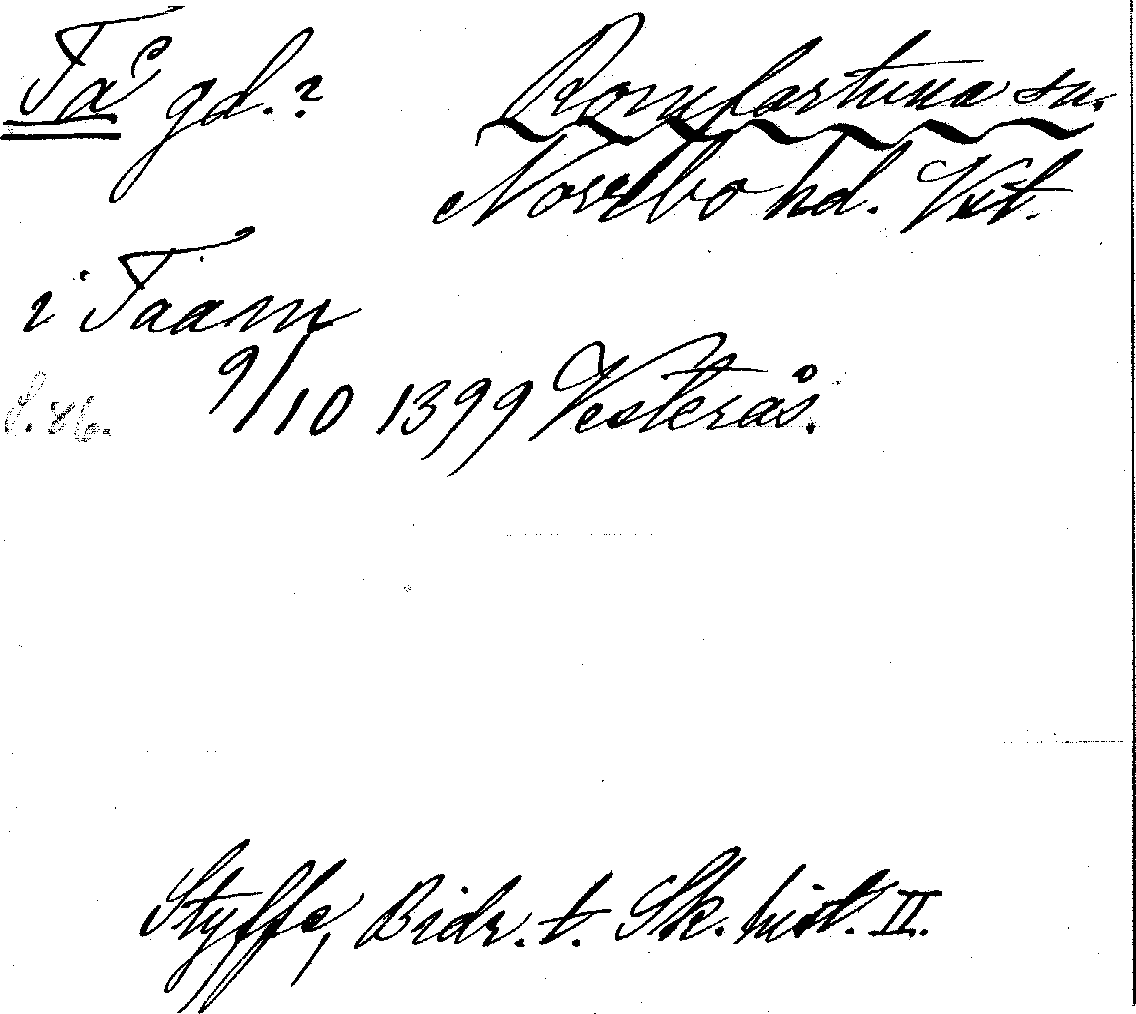 Tå gd.? Romfartuna sn.
Norrbo hd. Vst.
i Taam
S. 86. 9/10 1399 Vesterås.
Styffe, Bidr. t. Sk. hist. II.